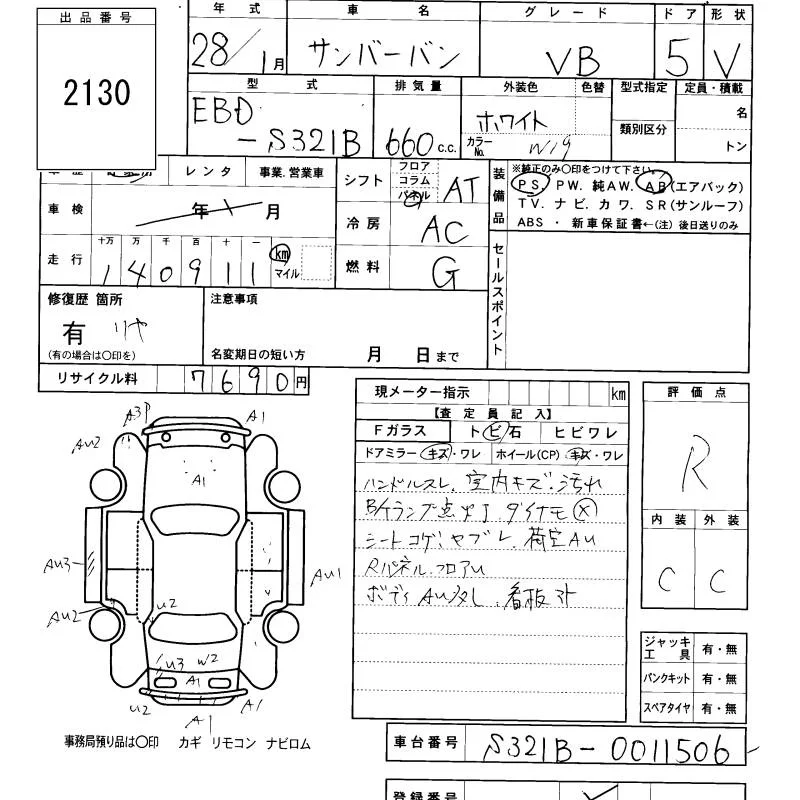 出品番号
2130
年式 車名 グレード ドア 形状
28/1月 サンバーバン VB 5 V
型式 排気量 外装色 色替 型式指定 定員・積載
EBD-S321B 660c.c. ホワイト カラーNo. W19 類別区分 名 トン
レンタ 事業.営業車
車検 年 月
走行 十万 万 千 百 十 一
140911 km マイル
シフト フロア コラム パネル AT
冷房 AC
燃料 G
装備品
※純正のみ○印をつけて下さい。
PS. PW. 純AW. AB(エアバック)
TV. ナビ. カワ. SR(サンルーフ)
ABS ・ 新車保証書←(注)後日送りのみ
セールスポイント
修復歴 箇所
有 リヤ
(有の場合は○印を)
注意事項
名変期日の短い方 月 日まで
リサイクル料 7690円
現メーター指示 km
【査定員記入】
Fガラス トビ石 ヒビワレ
ドアミラー キズ・ワレ ホイール(CP) キズ・ワレ
ハンドルスレ. 室内キズ.汚れ
B/ケランプ点灯 ダイナモ×
シートコゲ.ヤブレ. 荷室AU
Rパネル.フロアU
ボディAU多し. 看板アト
評価点
R
内装 外装
C C
ジャッキ工具 有・無
パンクキット 有・無
スペアタイヤ 有・無
A3P A1
AU2
A1
AU3
AU1
AU2
U2
U3 W2
A1
U2 A1
A1
事務局預り品は○印 カギ リモコン ナビロム
車台番号 S321B-0011506
登録番号